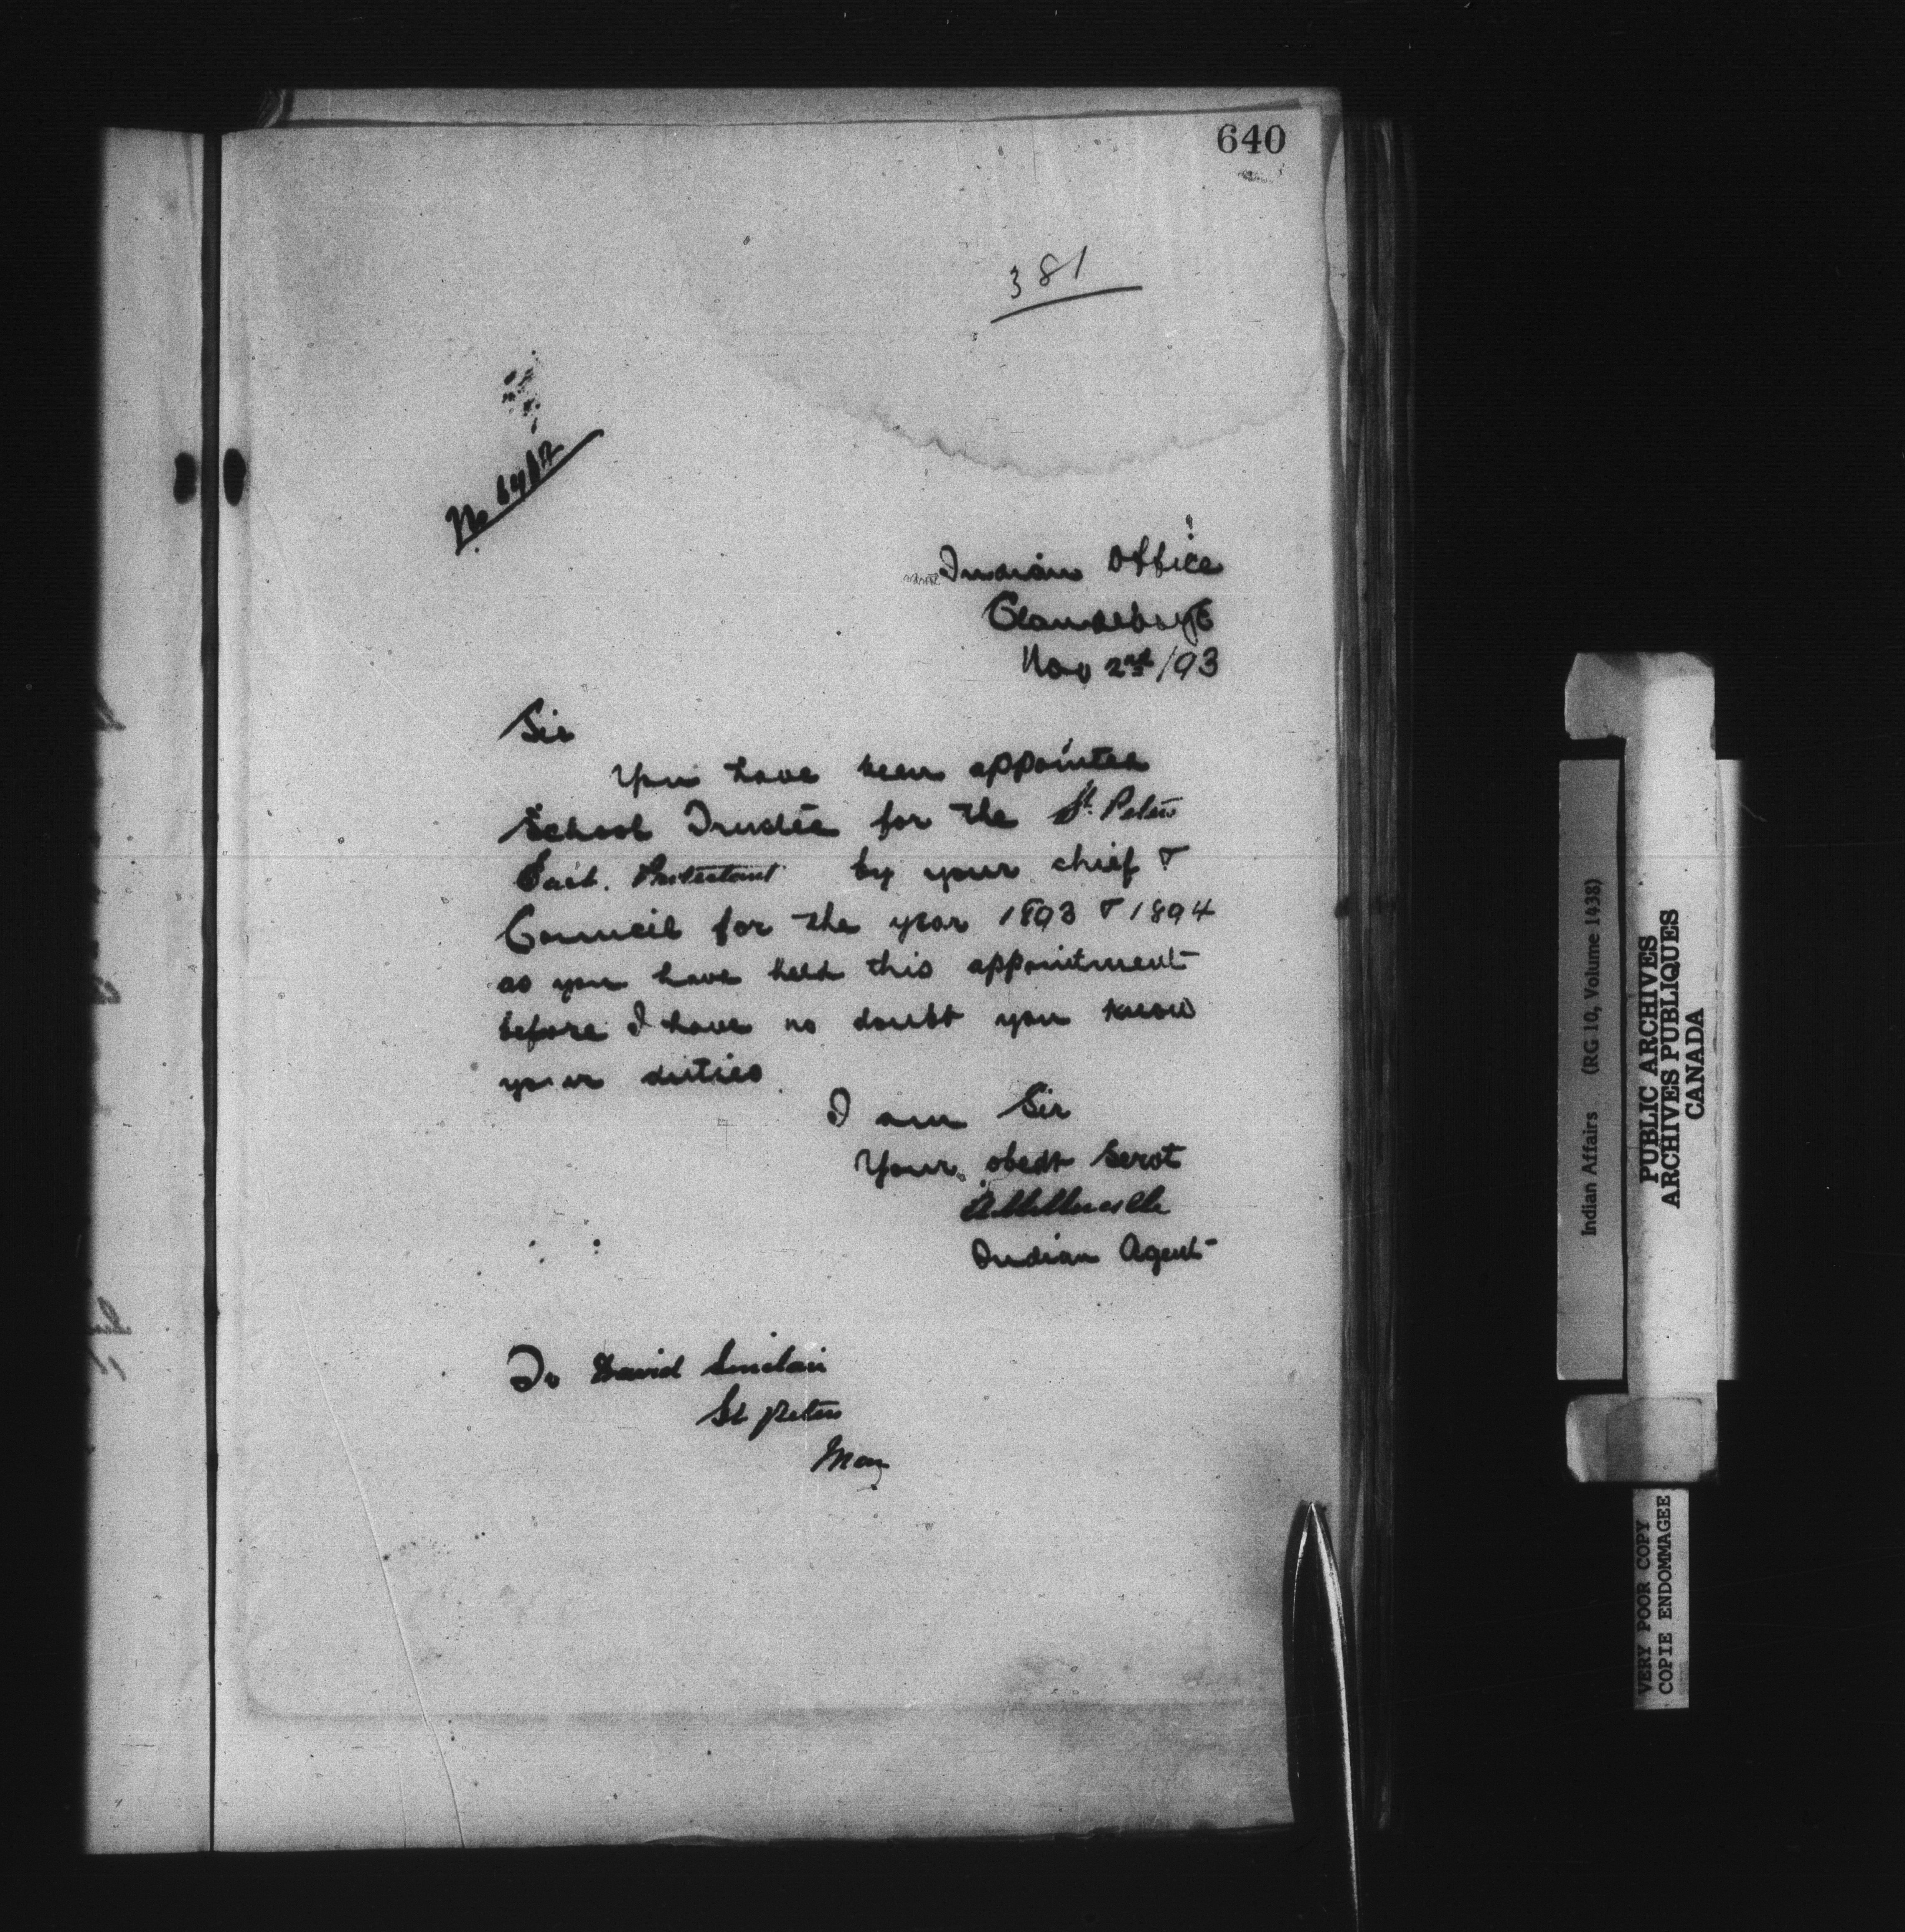 640
381
No
Indian Office
Clandeboye
Nov 2nd/93
Sir
You have been appointed
School Trustee for the St. Peters
East. Protestant by your chief &
Council for the year 1893 & 1894
as you have held this appointment
before I have no doubt you know
your duties
I am Sir
Your obedt Servt
Indian Agent
To David Sinclair
St Peters
Man
Indian Affairs (RG 10, Volume 1438)
PUBLIC ARCHIVES
ARCHIVES PUBLIQUES
CANADA
VERY POOR COPY
COPIE ENDOMMAGEE